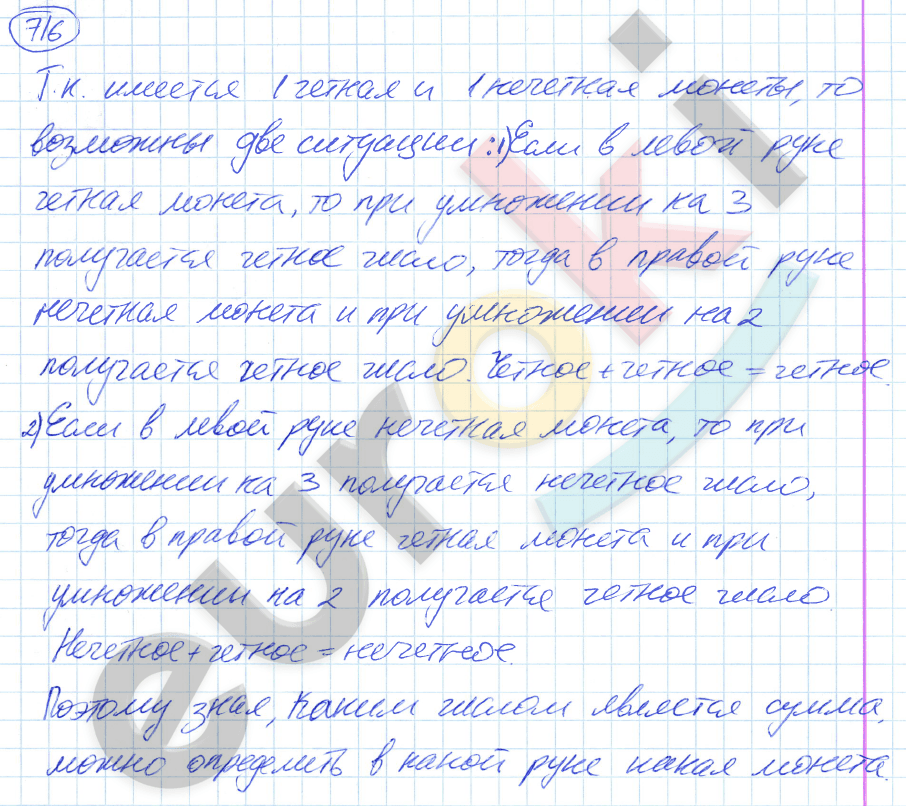 716
Т.к. имеется 1 четная и 1 нечетная монеты, то
возможны две ситуации: 1) Если в левой руке
четная монета, то при умножении на 3
получается четное число, тогда в правой руке
нечетная монета и при умножении на 2
получается четное число. Четное + четное = четное.
2) Если в левой руке нечетная монета, то при
умножении на 3 получается нечетное число,
тогда в правой руке четная монета и при
умножении на 2 получается четное число.
Нечетное + четное = нечетное.
Поэтому зная, каким числом является сумма,
можно определить в какой руке какая монета.
euroki